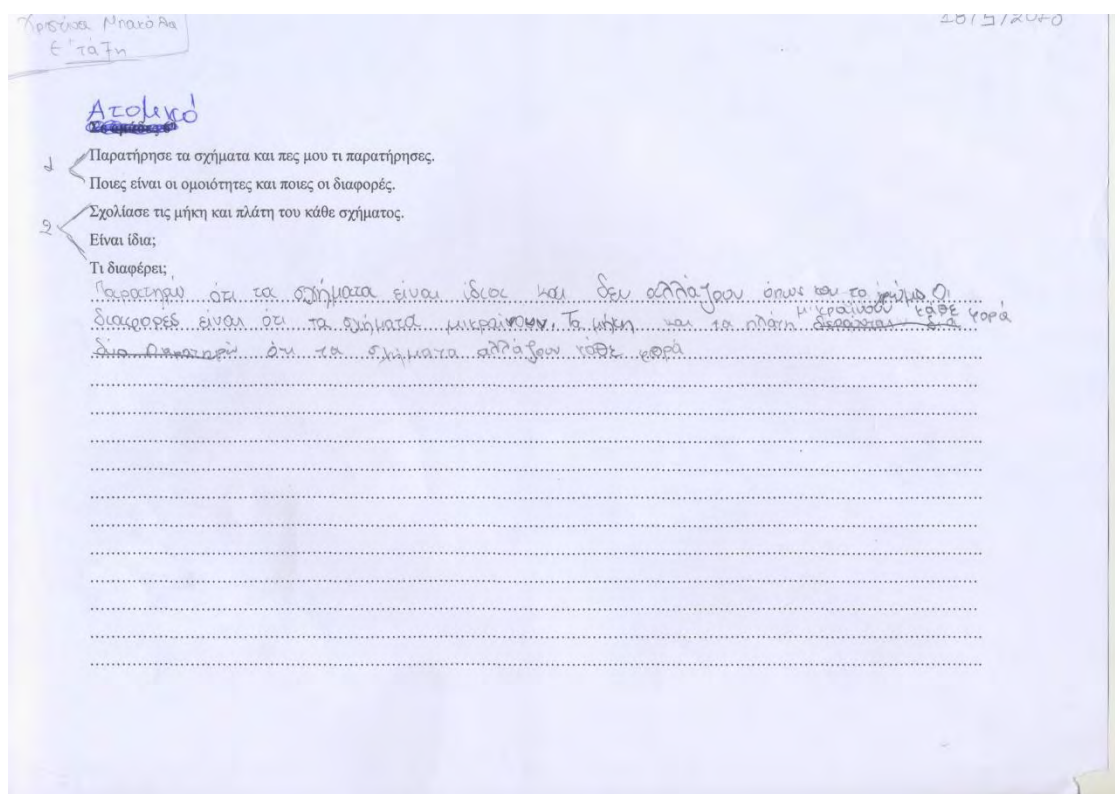 Χριστίνα Μπακόλα
Ε' τάξη
18/5/2020
Ατομικό
1
Παρατήρησε τα σχήματα και πες μου τι παρατήρησες.
Ποιες είναι οι ομοιότητες και ποιες οι διαφορές.
2
Σχολίασε τις μήκη και πλάτη του κάθε σχήματος.
Είναι ίδια;
Τι διαφέρει;
Παρατηρώ ότι τα σχήματα είναι ίδια και δεν αλλάζουν όπως και το χρώμα Οι
διαφορές είναι ότι τα σχήματα μικραίνουν. Τα μήκη και τα πλάτη μικραίνουν κάθε φορά
ότι τα σχήματα αλλάζουν κάθε φορά